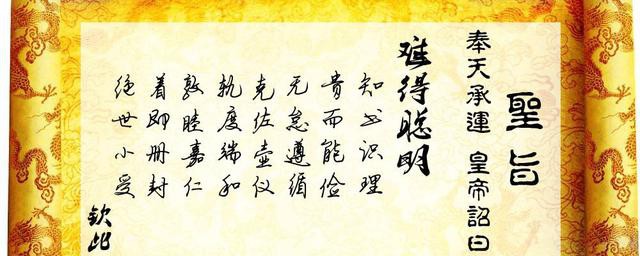 聖旨
奉天承運 皇帝詔曰
难得聪明
知书识理
贵而能俭
无怠遵循
克佐壶仪
轨度端和
敦睦嘉仁
着即册封
绝世小受
钦此